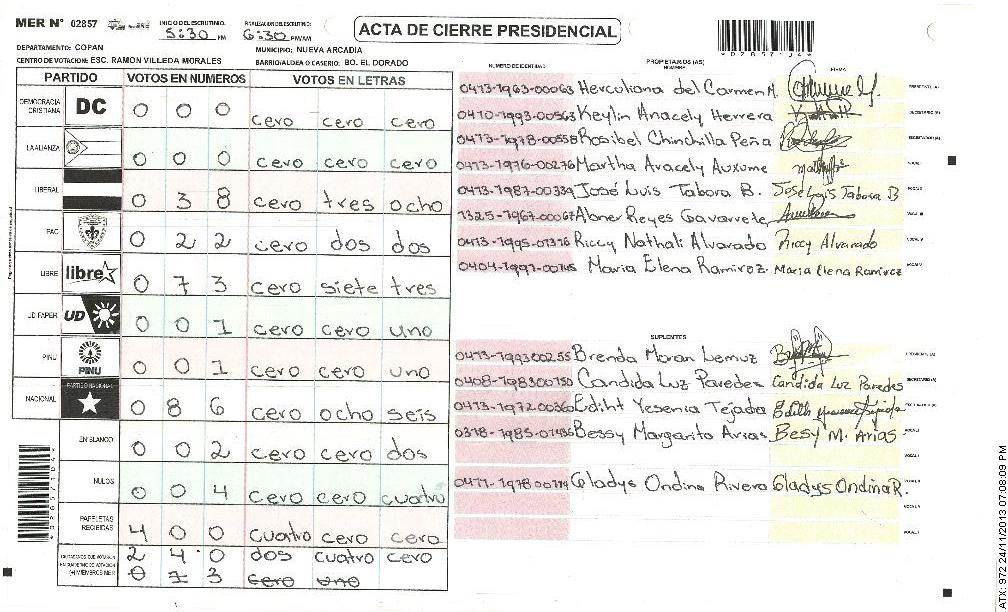 MER N° 02857
INICIO DEL ESCRUTINIO: 5:30 PM
FINALIZACION DEL ESCRUTINIO: 6:30 PM/AM
ACTA DE CIERRE PRESIDENCIAL
*02857104*
DEPARTAMENTO: COPAN
MUNICIPIO: NUEVA ARCADIA
CENTRO DE VOTACION: ESC. RAMON VILLEDA MORALES
BARRIO/ALDEA O CASERIO: BO. EL DORADO
PARTIDO VOTOS EN NUMEROS VOTOS EN LETRAS
DEMOCRACIA CRISTIANA DC 0 0 0 cero cero cero
LA ALIANZA 0 0 0 cero cero cero
LIBERAL 0 3 8 cero tres ocho
PAC 0 2 2 cero dos dos
LIBRE libre 0 7 3 cero siete tres
UD FAPER UD 0 0 1 cero cero uno
PINU PINU 0 0 1 cero cero uno
NACIONAL PARTIDO NACIONAL 0 8 6 cero ocho seis
EN BLANCO 0 0 2 cero cero dos
NULOS 0 0 4 cero cero cuatro
PAPELETAS RECIBIDAS 4 0 0 cuatro cero cero
CIUDADANOS QUE VOTARON EN CUADERNO DE VOTACION (+) MIEMBROS MER 2 4 0 dos cuatro cero
0 1 3 cero uno
NUMERO DE IDENTIDAD
PROPIETARIOS (AS)
NOMBRE
FIRMA
0413-1963-00063 Herculiana del Carmen M. PRESIDENTE (A)
0410-1993-00563 Keylin Anacely Herrera SECRETARIO (A)
0413-1978-00558 Rosibel Chinchilla Peña ESCRUTADOR (A)
0413-1976-00276 Martha Aracely Auxume VOCAL I
0413-1987-00339 José Luis Tabora B. José Luis Tabora B VOCAL II
1325-1967-00067 Abner Reyes Gavarrete VOCAL III
0413-1995-01376 Riccy Nathali Alvarado Riccy Alvarado VOCAL IV
Maria Elena Ramirez. Maria Elena Ramirez VOCAL V
SUPLENTES
0413-1993 00255 Brenda Moran Lemuz PRESIDENTE (A)
0408-1983 00150 Candida Luz Paredes Candida Luz Paredes SECRETARIO (A)
0413-1972-00360 Ediht Yesenia Tejada ESCRUTADOR (A)
0318-1985-01436 Bessy Margarita Arias Besy M. Arias VOCAL I
VOCAL II
Gladys Ondina Rivera Gladys Ondina R. VOCAL III
*02857104*
ATX: 972 24/11/2013 07:08:09 PM